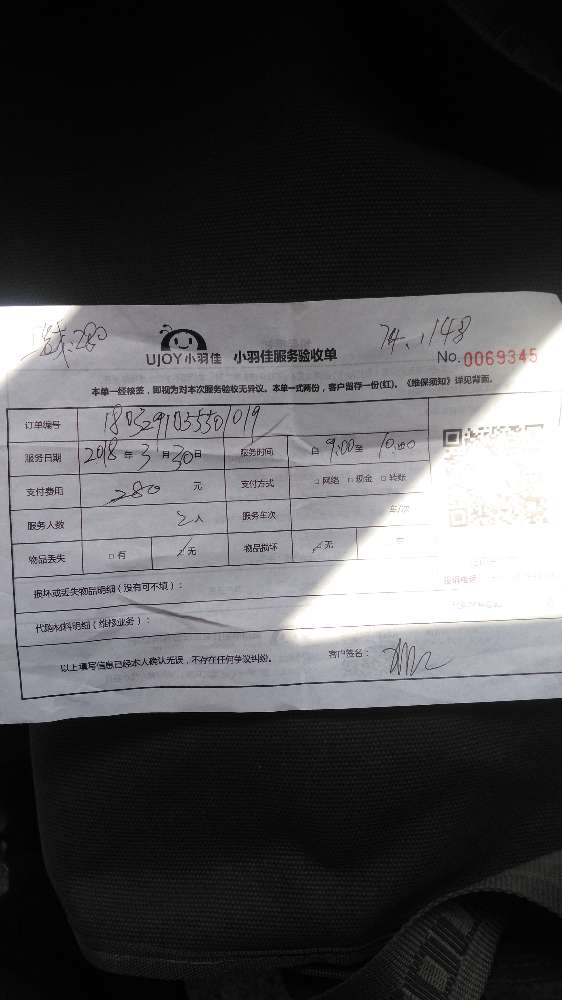 280 74.1148
UJOY小羽佳 小羽佳服务验收单 No.0069345
本单一经接签，即视为对本次服务验收无异议。本单一式两份，客户留存一份(红)。《维保须知》详见背面。
订单编号 1803291055501019
服务日期 2018年3月30日 服务时间 自9:00至10:00
支付费用 280 元 支付方式 □网络 □现金 □转账
服务人数 2人 服务车次 车/次
物品丢失 □有 ☑无 物品损坏 ☑无
损坏或丢失物品明细（没有可不填）：
代购材料明细（维修业务）：
以上填写信息已经本人确认无误，不存在任何争议纠纷。 客户签名：